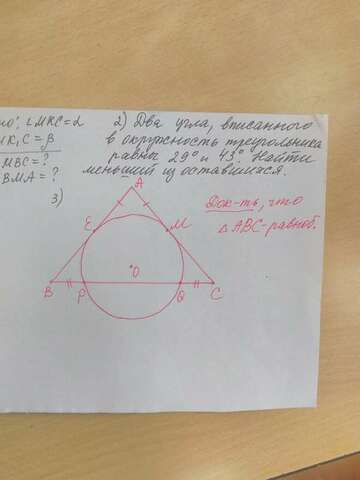 ∠MKC=α
2) Два угла, вписанного
K₁C=β
в окружность треугольника
MBC=?
равны 29° и 43°. Найти
BMA=?
меньший из оставшихся.
3)
A
Док-ть, что
ΔABC-равноб.
E
M
O
B
P
Q
C